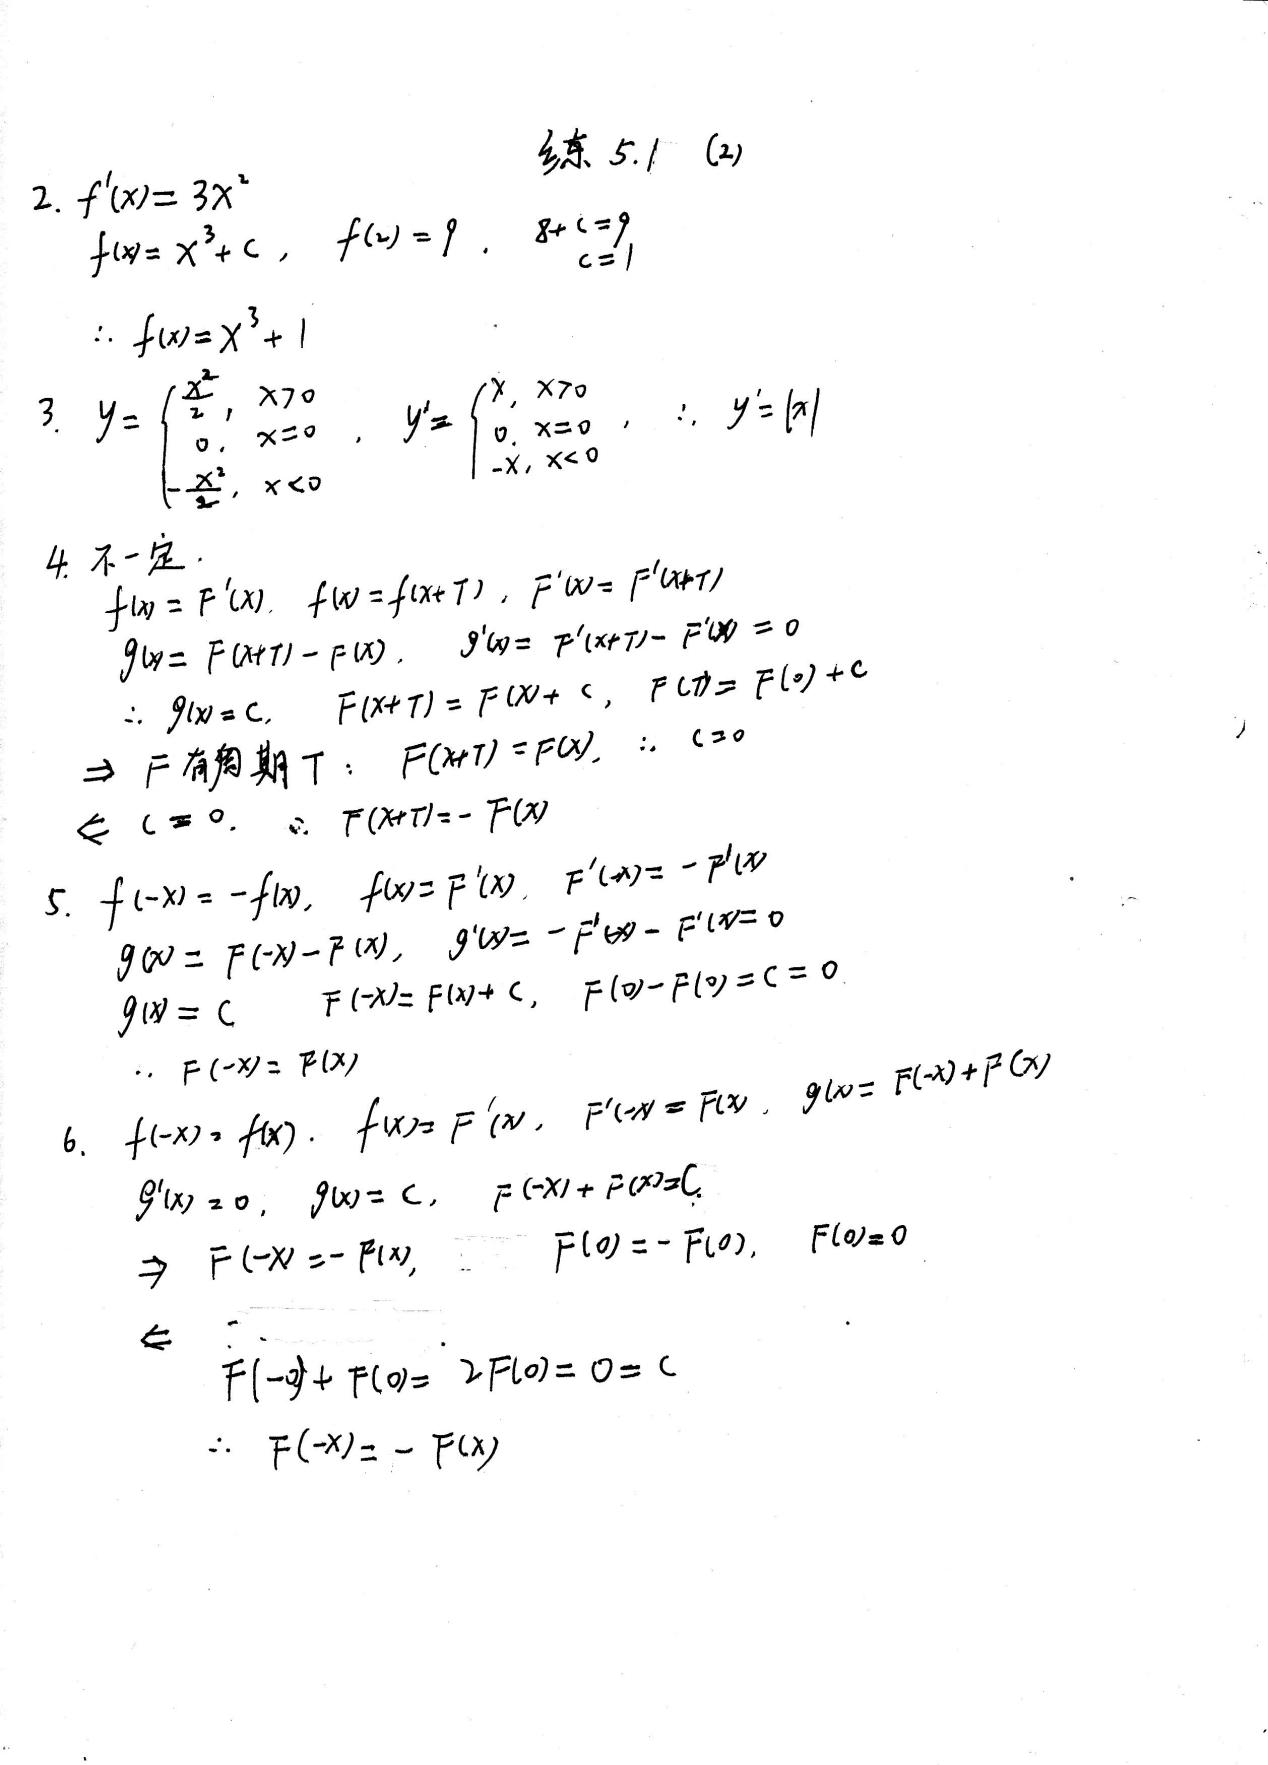 练 5.1 (2)
2. f'(x) = 3x²
f(x) = x³ + c , f(2) = 9 . 8 + c = 9,
c = 1
∴ f(x) = x³ + 1
3. y = { x²/2 , x>0 0 , x=0 -x²/2 , x<0 , y' = { x, x>0 0, x=0 -x, x<0 , ∴ y' = |x|
4. 不一定 .
f(x) = F'(x). f(x) = f(x+T) , F'(x) = F'(x+T)
g(x) = F(x+T) - F(x) , g'(x) = F'(x+T) - F'(x) = 0
∴ g(x) = C, F(x+T) = F(x) + c , F(T) = F(0) + c
⇒ F 有周期 T : F(x+T) = F(x), ∴ c=0
⇐ c = 0. ∴ F(x+T) = - F(x)
5. f(-x) = - f(x), f(x) = F'(x), F'(-x) = - F'(x)
g(x) = F(-x) - F(x), g'(x) = - F'(x) - F'(x) = 0
g(x) = C F(-x) = F(x) + C, F(0) - F(0) = C = 0
∴ F(-x) = F(x)
6. f(-x) = f(x) . f(x) = F'(x), F'(-x) = F(x) , g(x) = F(-x) + F(x)
g'(x) = 0, g(x) = C, F(-x) + F(x) = C.
⇒ F(-x) = - F(x), F(0) = - F(0), F(0) = 0
⇐
F(-0) + F(0) = 2F(0) = 0 = C
∴ F(-x) = - F(x)